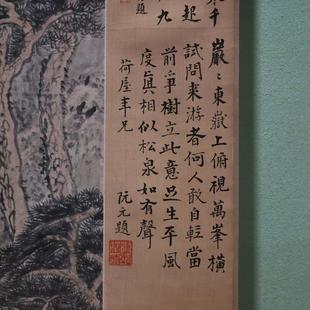 千
起
九
題
巖〻東嶽上俯視萬峯橫
試問来游者何人敢自輕當
前爭樹立此意足生平風
度真相似松泉如有聲
荷屋年兄
阮元題